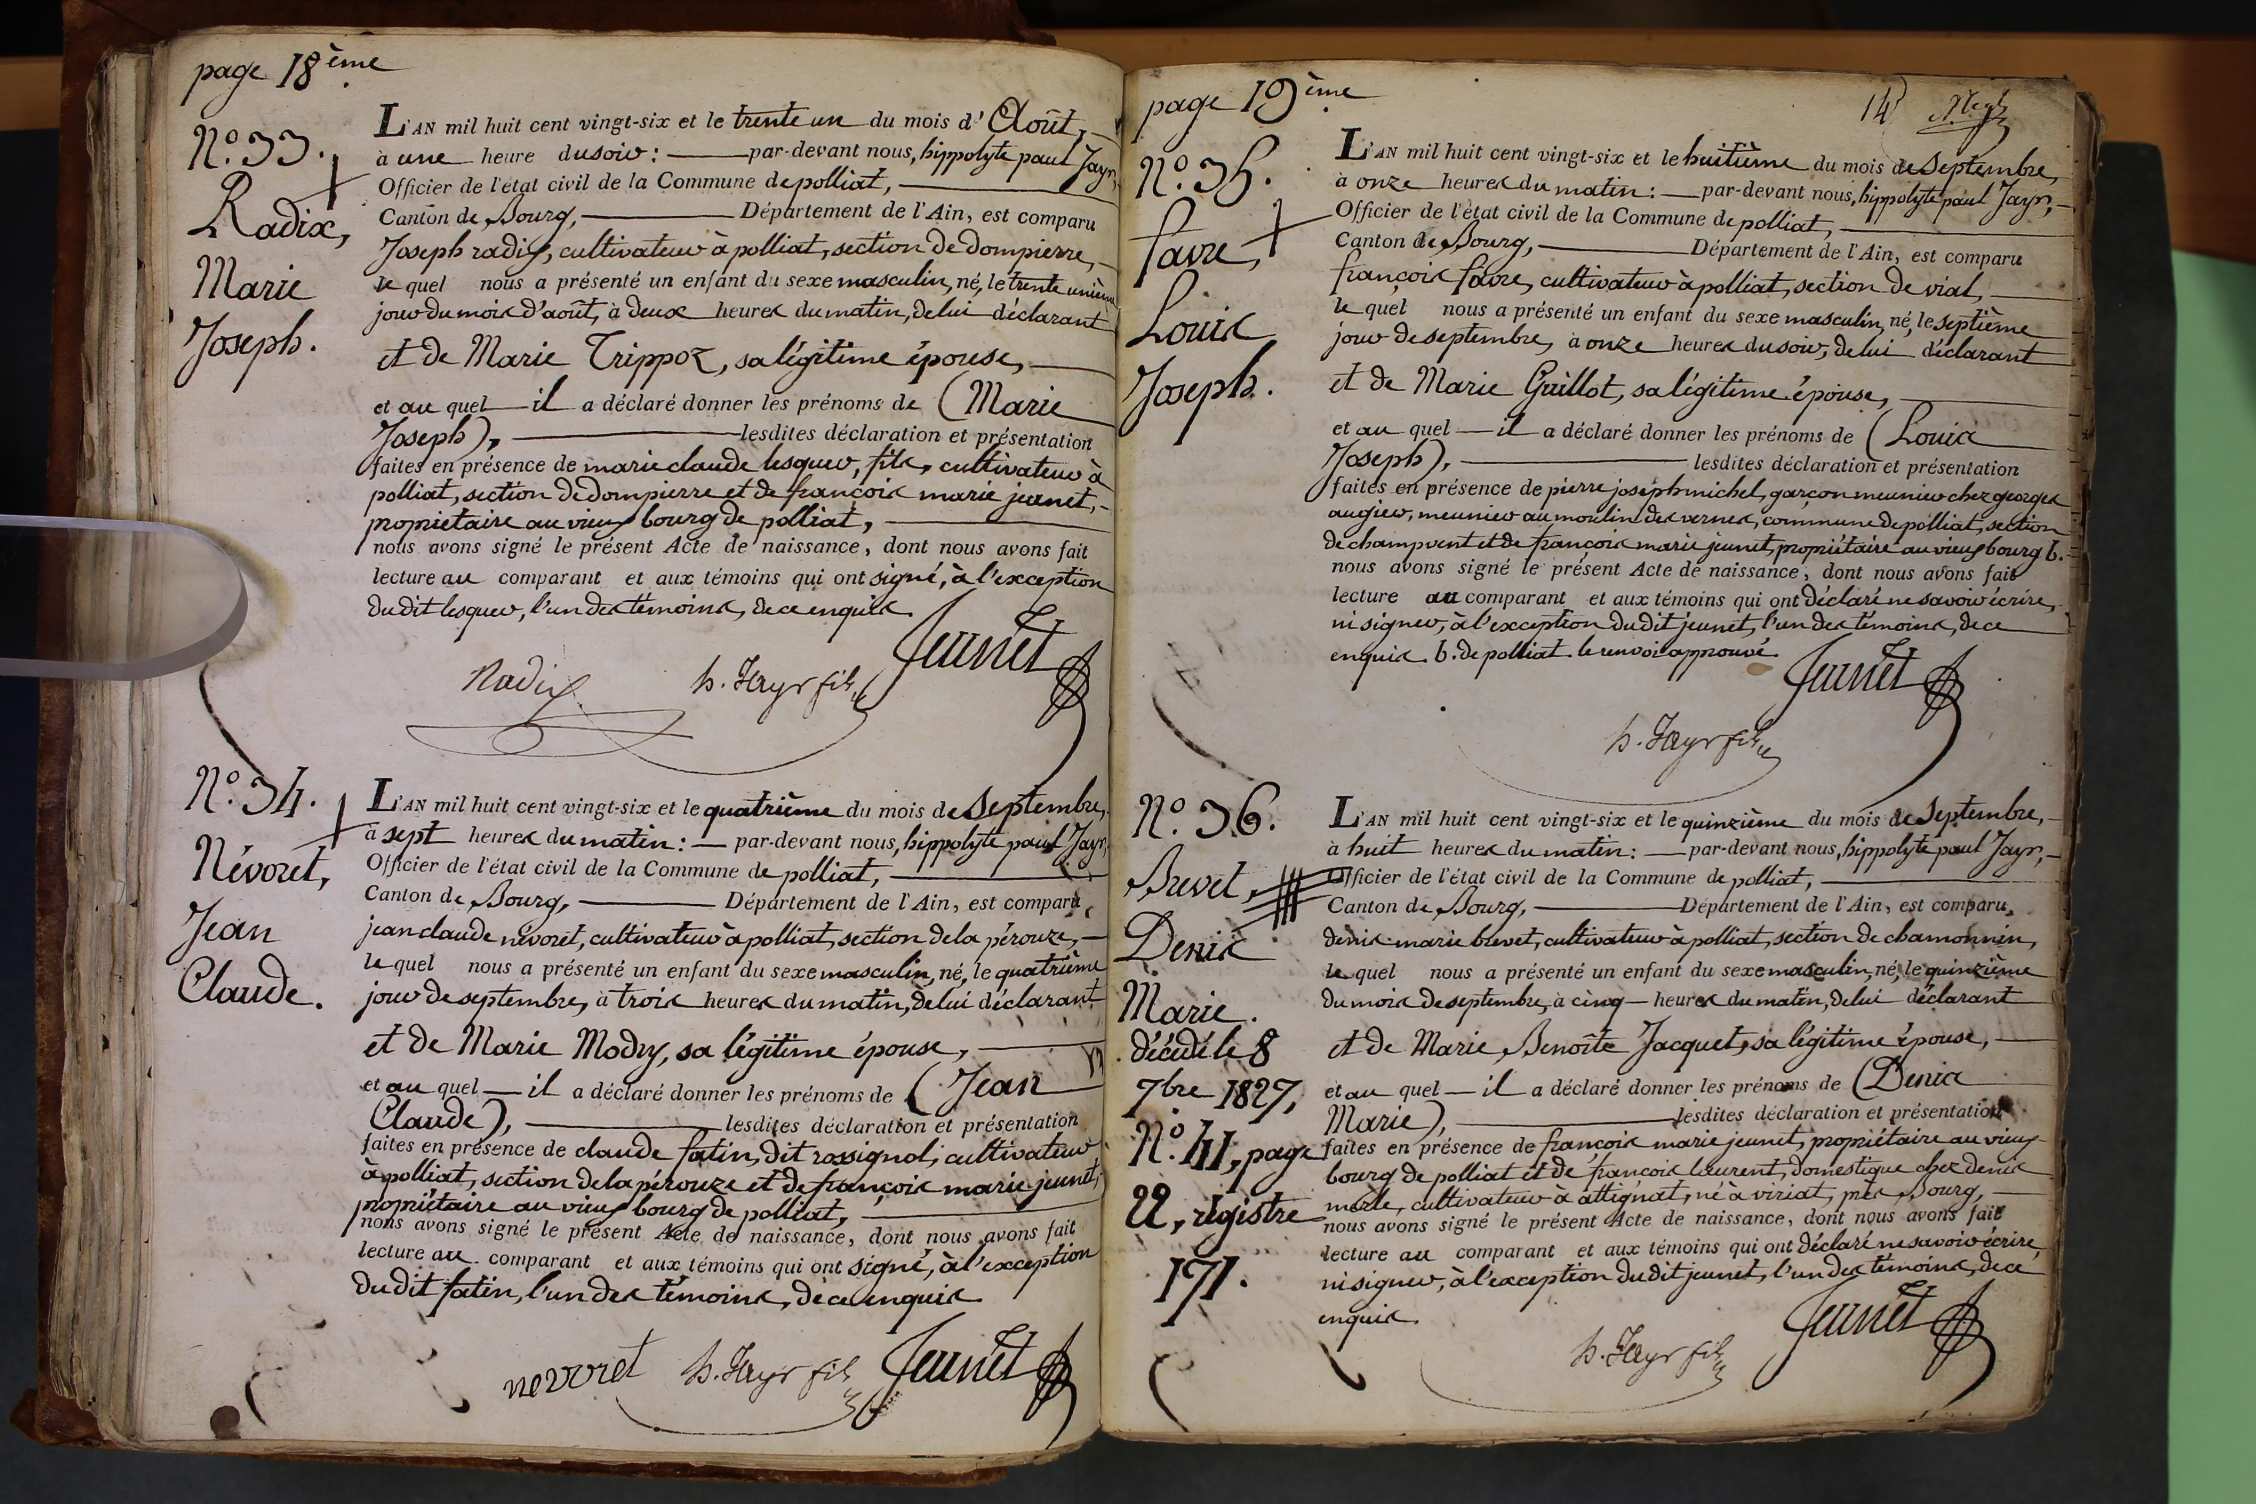 page 18ème
N.º 33.
Radix,
Marie
Joseph.
L'AN mil huit cent vingt-six et le trente un du mois d'Août,
à une heure du soir : par-devant nous, hippolyte paul Jayr,
Officier de l'état civil de la Commune de polliat,
Canton de Bourg, Département de l'Ain, est comparu
Joseph radix, cultivateur à polliat, section de dompierre,
le quel nous a présenté un enfant du sexe masculin, né, le trente unième
jour du mois d'août, à deux heures du matin, de lui déclarant
et de Marie Trippoz, sa légitime épouse,
et au quel il a déclaré donner les prénoms de (Marie
Joseph), lesdites déclaration et présentation
faites en présence de marie claude lesqueur, fils, cultivateur à
polliat, section de dompierre et de françois marie jeunet,
propriétaire au vieux bourg de polliat,
nous avons signé le présent Acte de naissance, dont nous avons fait
lecture au comparant et aux témoins qui ont signé, à l'exception
du dit lesqueur, l'un des témoins, de ce enquis.
Radix h. Jayr fils Jeunet
N.º 34.
Névoret,
Jean
Claude.
L'AN mil huit cent vingt-six et le quatrième du mois de Septembre,
à sept heures du matin : par-devant nous, hippolyte paul Jayr,
Officier de l'état civil de la Commune de polliat,
Canton de Bourg, Département de l'Ain, est comparu
jean claude névoret, cultivateur à polliat, section de la pérouze,
le quel nous a présenté un enfant du sexe masculin, né, le quatrième
jour de septembre, à trois heures du matin, de lui déclarant
et de Marie Modry, sa légitime épouse,
et au quel il a déclaré donner les prénoms de (Jean
Claude), lesdites déclaration et présentation
faites en présence de claude fatin, dit rossignol, cultivateur
à polliat, section de la pérouze et de françois marie jeunet,
propriétaire au vieux bourg de polliat,
nous avons signé le présent Acte de naissance, dont nous avons fait
lecture au comparant et aux témoins qui ont signé, à l'exception
du dit fatin, l'un des témoins, de ce enquis.
nevoret h. Jayr fils Jeunet
page 19ème
14
N.º 35.
favre,
Louis
Joseph.
L'AN mil huit cent vingt-six et le huitième du mois de Septembre,
à onze heures du matin : par-devant nous, hippolyte paul Jayr,
Officier de l'état civil de la Commune de polliat,
Canton de Bourg, Département de l'Ain, est comparu
françois favre, cultivateur à polliat, section de vial,
le quel nous a présenté un enfant du sexe masculin, né, le septième
jour de septembre, à onze heures du soir, de lui déclarant
et de Marie Guillot, sa légitime épouse,
et au quel il a déclaré donner les prénoms de (Louis
Joseph), lesdites déclaration et présentation
faites en présence de pierre joseph michel, garçon meunier chez georges
augier, meunier au moulin des vernes, commune de polliat, section
de champvent et de françois marie jeunet, propriétaire au vieux bourg b.
nous avons signé le présent Acte de naissance, dont nous avons fait
lecture au comparant et aux témoins qui ont déclaré ne savoir écrire,
ni signer, à l'exception du dit jeunet, l'un des témoins, de ce
enquis. b. de polliat. le renvoi approuvé.
Jeunet
h. Jayr fils
N.º 36.
Brevet,
Denis
Marie.
décédé le 8
7bre 1827,
N.º 41, page
22, registre
171.
L'AN mil huit cent vingt-six et le quinzième du mois de Septembre,
à huit heures du matin : par-devant nous, hippolyte paul Jayr,
Officier de l'état civil de la Commune de polliat,
Canton de Bourg, Département de l'Ain, est comparu,
denis marie brevet, cultivateur à polliat, section de chamonnin,
le quel nous a présenté un enfant du sexe masculin, né, le quinzième
du mois de septembre, à cinq heures du matin, de lui déclarant
et de Marie Benoîte Jacquet, sa légitime épouse,
et au quel il a déclaré donner les prénoms de (Denis
Marie), lesdites déclaration et présentation
faites en présence de françois marie jeunet, propriétaire au vieux
bourg de polliat et de françois laurent, domestique chez denis
merle, cultivateur à attignat, né à viriat, près Bourg,
nous avons signé le présent Acte de naissance, dont nous avons fait
lecture au comparant et aux témoins qui ont déclaré ne savoir écrire
ni signer, à l'exception du dit jeunet, l'un des témoins, de ce
enquis.
h. Jayr fils Jeunet